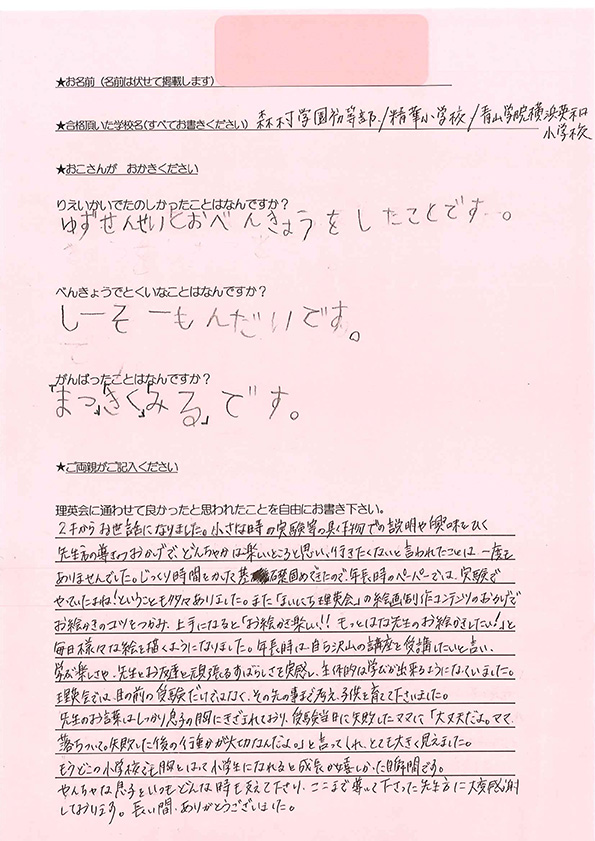 ★お名前(名前は伏せて掲載します)
★合格頂いた学校名(すべてお書きください) 森村学園初等部/精華小学校/青山学院横浜英和
小学校
★おこさんが おかきください
りえいかいでたのしかったことはなんですか?
ゆずせんせいとおべんきょうをしたことです。
べんきょうでとくいなことはなんですか?
しーそーもんだいです。
がんばったことはなんですか?
「まつ」「きく」「みる」です。
★ご両親がご記入ください
理英会に通わせて良かったと思われたことを自由にお書き下さい。
2才からお世話になりました。小さな時の実験等の具体物での説明や興味をひく
先生方の導きのおかげで、どんちゃかは楽しいところと思い、行きたくないと言われたことは一度も
ありませんでした。じっくり時間をかけて基礎固めできたので、年長時のペーパーでは、実験で
やっていたよね!ということも多々ありました。また「まいにち理英会」の絵画制作コンテンツのおかげで
お絵かきのコツをつかみ、上手になると「お絵かき楽しい!!もっとはな先生のお絵かきしたい!」と
毎日様々な絵を描くようになりました。年長時は自ら沢山の講座を受講したいと言い、
学ぶ楽しさや、先生とお友達と頑張るすばらしさを実感し、主体的な学びが出来るようになっていました。
理英会では、目の前の受験だけではなく、その先の事まで考え、子供を育てて下さいました。
先生のお言葉はしっかり息子の胸にきざまれており、受験当日に失敗したママに「大丈夫だよ。ママ、
落ちついて。失敗した後の行動が大切なんだよ。」と言ってくれ、とても大きく見えました。
もうどこの小学校でも胸をはって小学生になれると成長が嬉しかった瞬間です。
やんちゃな息子をいつもどんな時も支えて下さり、ここまで導いて下さった先生方に大変感謝
しております。長い間、ありがとうございました。